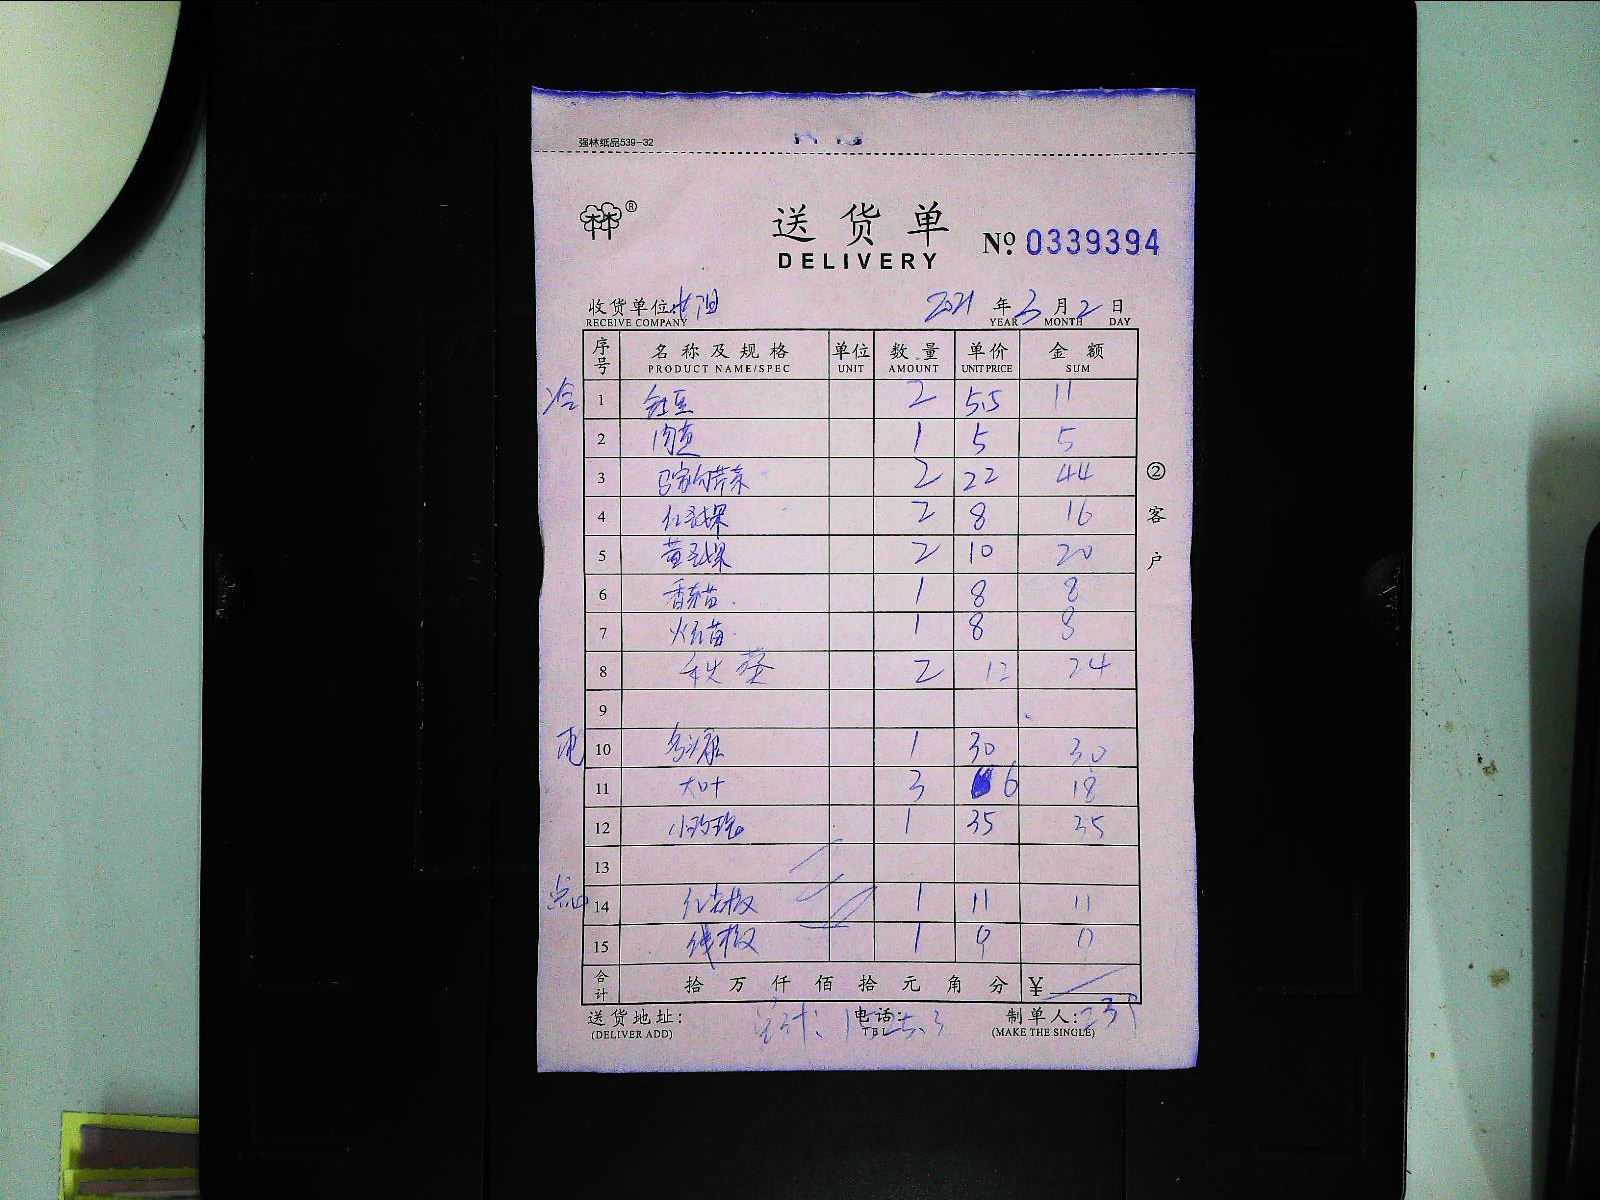 强林纸品539-32
®
送货单
DELIVERY
№ 0339394
收货单位 2021 年 3 月 2 日
RECEIVE COMPANY YEAR MONTH DAY
序号 名称及规格 单位 数量 单价 金额
PRODUCT NAME/SPEC UNIT AMOUNT UNIT PRICE SUM
冷 1 2 5.5 11
2 1 5 5
3 2 22 44
4 2 8 16
5 2 10 20
6 香菜苗 1 8 8
7 1 8 8
8 秋葵 2 12 24
9
10 1 30 30
11 大叶 3 6 18
12 小玫瑰 1 35 35
13
点心 14 红尖椒 1 11 11
15 线椒 1 9 9
合计 拾万仟佰拾元角分 ¥ 239
②客户
送货地址: 电话: 制单人:
(DELIVER ADD) TEL (MAKE THE SINGLE)